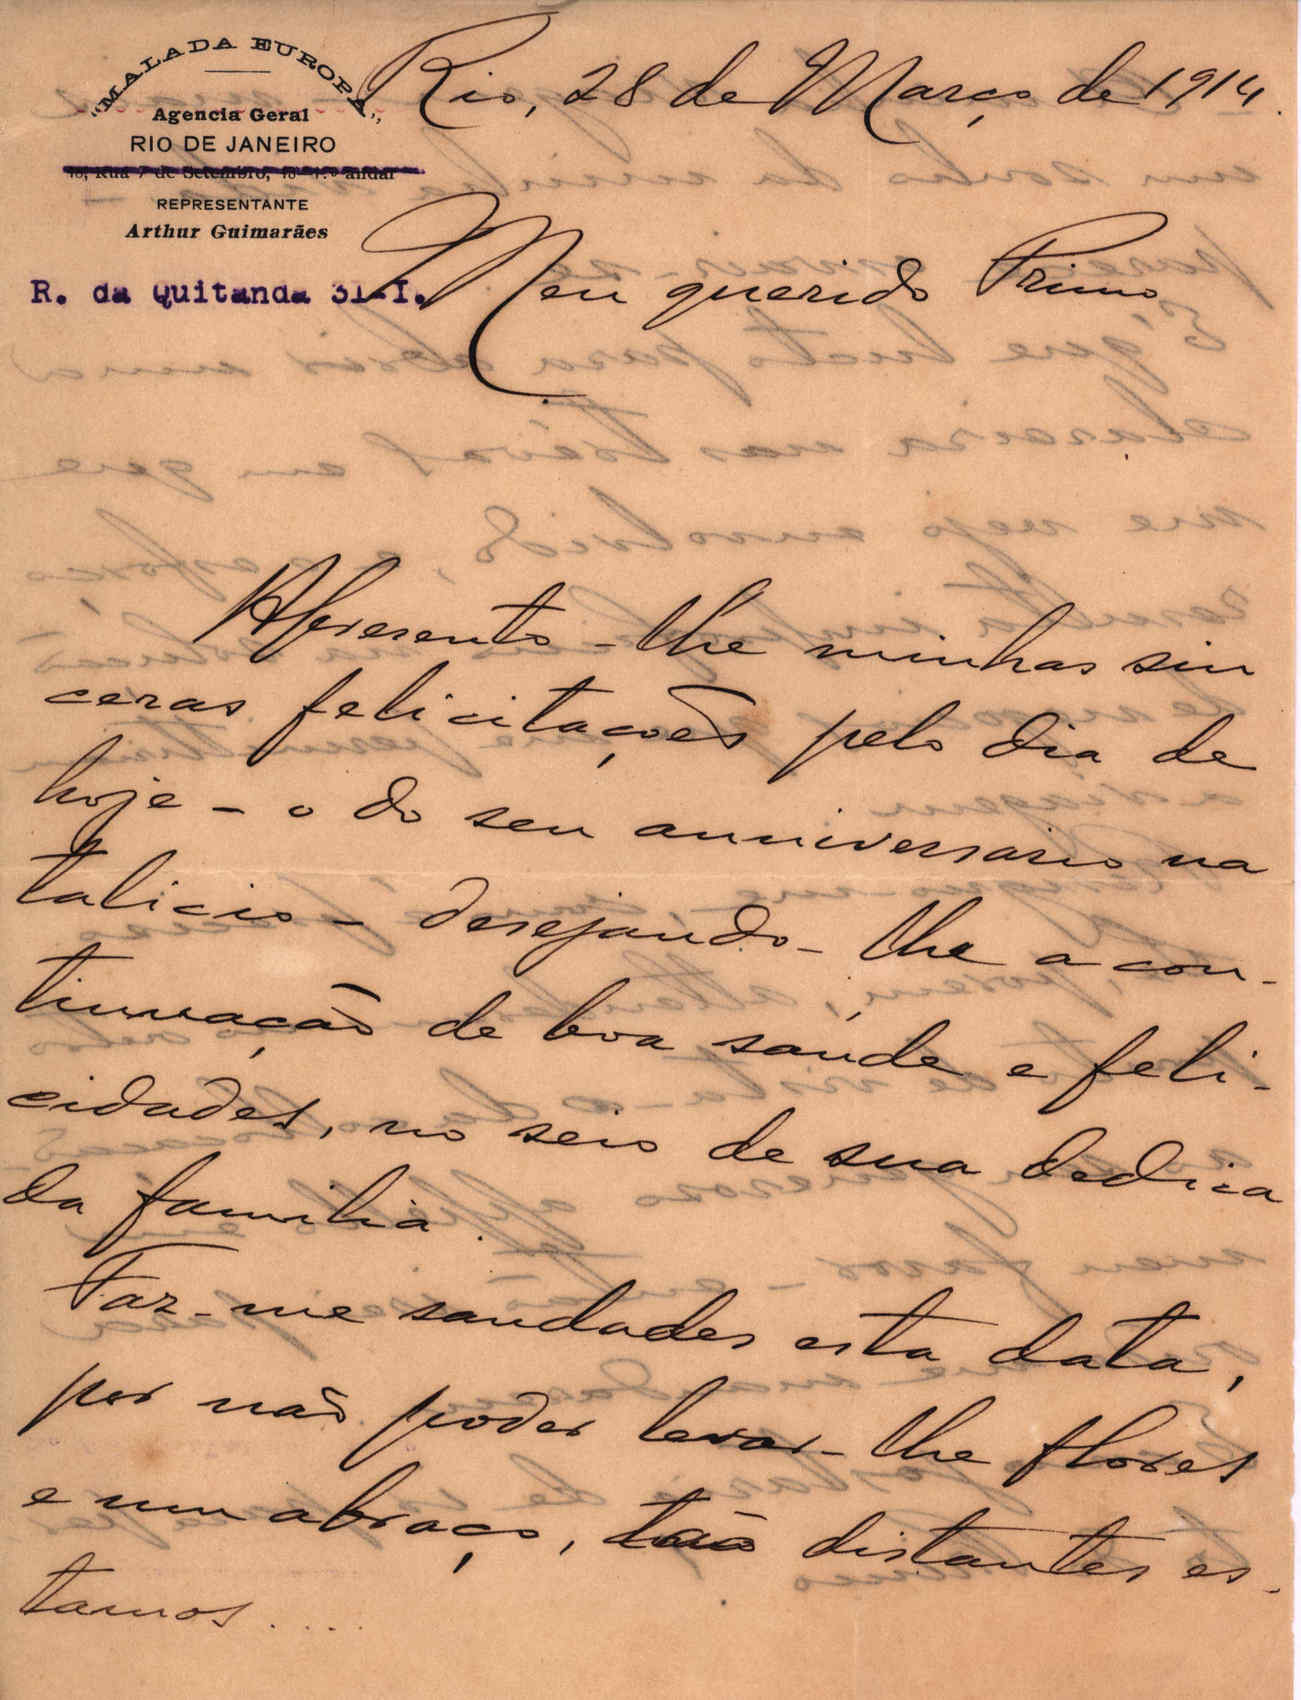 "MALA DA EUROPA"
Agencia Geral
RIO DE JANEIRO
18, Rua 7 de Setembro, 18-1.º andar
REPRESENTANTE
Arthur Guimarães
R. da Quitanda 31-I.
Rio, 28 de Março de 1914.
Meu querido Primo
Apresento-lhe minhas sin
ceras felicitações pelo dia de
hoje - o do seu anniversario na
talicio - desejando-lhe a con-
tinuação de boa saúde e feli-
cidades, no seio de sua dedica
da familia.
Faz-me saudades esta data,
por não poder levar-lhe flores
e um abraço, tão distantes es-
tamos....